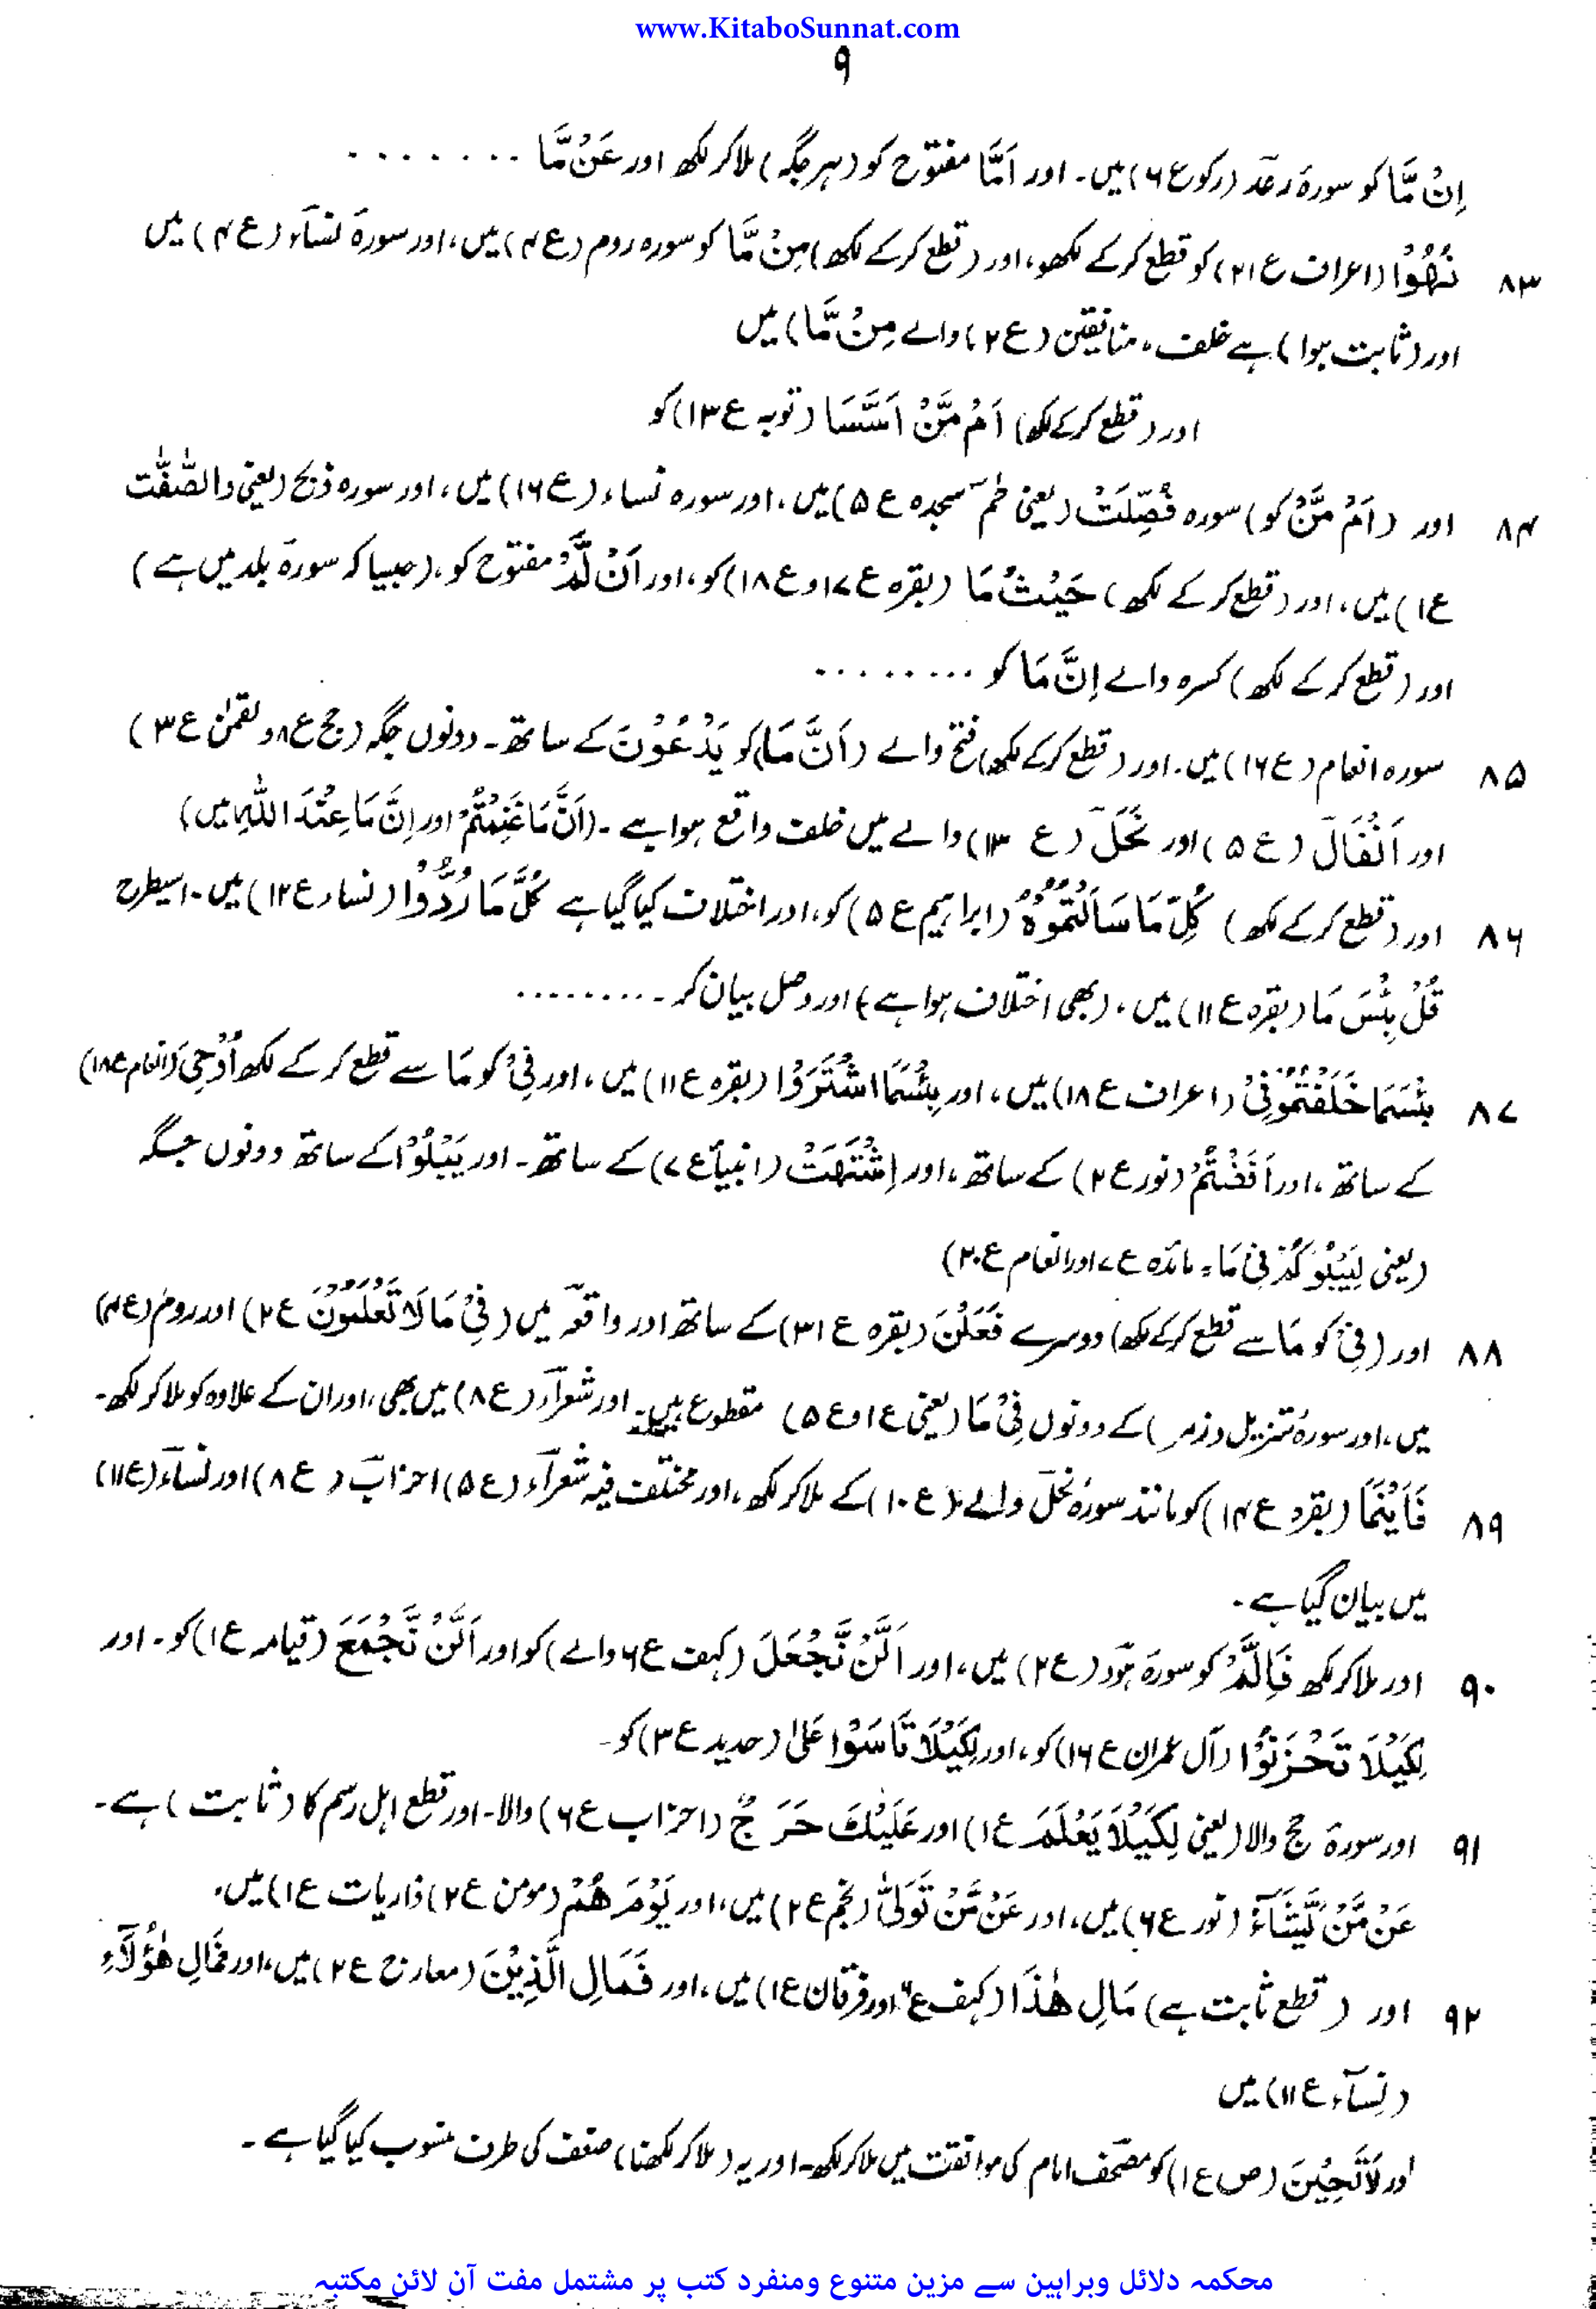 www.KitaboSunnat.com
۹
اِنْ مَّا کو سورۂ رعد (رکوع ۶) میں۔ اور اَمَّا مفتوح کو (ہر جگہ) ملا کر لکھ اور عَنْ مَّا . . . . . . .
۸۳ نُهُوْا (اعراف ع ۲۱) کو قطع کرکے لکھو، اور (قطع کرکے لکھ) مِنْ مَّا کو سورہ روم (ع ۴) میں، اور سورۃ نسآء (ع ۴) میں
اور (ثابت ہوا) ہے خلف، منافقین (ع ۲) والے مِنْ مَّا) میں
اور (قطع کرکے لکھ) اَمْ مَّنْ اَسَّسَا (توبہ ع ۱۳) کو
۸۴ اور (اَمْ مَّنْ کو) سورہ فُصِّلَتْ (یعنی حٰم سجدہ ع ۵) میں، اور سورہ نساء (ع ۱۶) میں، اور سورہ ذبح (یعنی والصّٰفّٰت
ع ۱) میں، اور (قطع کر کے لکھ) حَیْثُ مَا (بقرہ ع ۱۷ و ع ۱۸) کو، اور اَنْ لَّمْ مفتوح کو، (جیسا کہ سورۃ بلد میں ہے)
اور (قطع کر کے لکھ) کسرہ والے اِنَّ مَا کو . . . . . . . . .
۸۵ سورہ انعام (ع ۱۶) میں۔ اور (قطع کرکے لکھ) فتح والے (اَنَّ مَا) کو یَدْعُوْنَ کے ساتھ۔ دونوں جگہ (حج ع ۸ و لقمٰن ع ۳)
اور اَنْفَالَ (ع ۵) اور نَحْلَ (ع ۱۳) والے میں خلف واقع ہوا ہے۔ (اَنَّ مَا غَنِمْتُمْ اور اِنَّ مَا عِنْدَ اللّٰهِ میں)
۸۶ اور (قطع کر کے لکھ) کُلِّ مَا سَاَلْتُمُوْهُ (ابراہیم ع ۵) کو، اور اختلاف کیا گیا ہے کُلَّ مَا رُدُّوْا (نساء ع ۱۲) میں۔ اسیطرح
قُلْ بِئْسَ مَا (بقرہ ع ۱۱) میں، (بھی اختلاف ہوا ہے) اور وصل بیان کر . . . . . . . . .
۸۷ بِئْسَمَا خَلَفْتُمُوْنِیْ (اعراف ع ۱۸) میں، اور بِئْسَمَا اشْتَرَوْا (بقرہ ع ۱۱) میں، اور فِیْ کو مَا سے قطع کر کے لکھ اُوْحِیَ (انعام ع ۱۸)
کے ساتھ، اور اَفَضْتُمْ (نور ع ۲) کے ساتھ، اور اِشْتَهَتْ (انبیآ ع ۷) کے ساتھ۔ اور یَبْلُوْا کے ساتھ دونوں جگہ
(یعنی لِیَبْلُوَکُمْ فِیْ مَا۔ مائدہ ع ۷ اور انعام ع ۲۰)
۸۸ اور (فِیْ کو مَا سے قطع کرکے لکھ) دوسرے فَعَلْنَ (بقرہ ع ۳۱) کے ساتھ اور واقعہ میں (فِیْ مَا لَا تَعْلَمُوْنَ ع ۲) اور روم (ع ۴)
میں، اور سورۂ تنزیل (زمر) کے دونوں فِیْ مَا (یعنی ع ۱ و ع ۵) مقطوع ہیں۔ اور شعرآء (ع ۸) میں بھی، اور ان کے علاوہ کو ملا کر لکھ۔
۸۹ فَاَیْنَمَا (بقرہ ع ۱۴) کو مانند سورۂ نحل والے (ع ۱۰) کے ملا کر لکھ، اور مختلف فیہ شعرآء (ع ۵) احزاب (ع ۸) اور نسآء (ع ۱۱)
میں بیان گیا ہے۔
۹۰ اور ملا کر لکھ فَاِلَّمْ کو سورۃ ہود (ع ۲) میں، اور اَلَّنْ نَّجْعَلَ (کہف ع ۶ والے) کو اور اَلَّنْ نَّجْمَعَ (قیامہ ع ۱) کو۔ اور
لِکَیْلَا تَحْزَنُوْا (آل عمران ع ۱۶) کو، اور لِکَیْلَا تَاْسَوْا عَلیٰ (حدید ع ۳) کو۔
۹۱ اور سورۃ حج والا (یعنی لِکَیْلَا یَعْلَمَ ع ۱) اور عَلَیْكَ حَرَجٌ (احزاب ع ۶) والا۔ اور قطع اہل رسم کا (ثابت) ہے۔
عَنْ مَّنْ یَّشَآءُ (نور ع ۶) میں، اور عَنْ مَّنْ تَوَلّٰی (نجم ع ۲) میں، اور یَوْمَ هُمْ (مومن ع ۲) ذاریات ع ۱) میں،
۹۲ اور (قطع ثابت ہے) مَالِ هٰذَا (کہف ع ۶ اور فرقان ع ۱) میں، اور فَمَالِ الَّذِیْنَ (معارج ع ۲) میں، اور فَمَالِ هٰۤؤُلَآءِ
(نسآء ع ۱۱) میں
اور لَاتَحِیْنَ (ص ع ۱) کو مصحف امام کی موافقت میں ملا کر لکھ۔ اور یہ (ملا کر لکھنا) ضعف کی طرف منسوب کیا گیا ہے۔
محکمہ دلائل وبراہین سے مزین متنوع ومنفرد کتب پر مشتمل مفت آن لائن مکتبہ